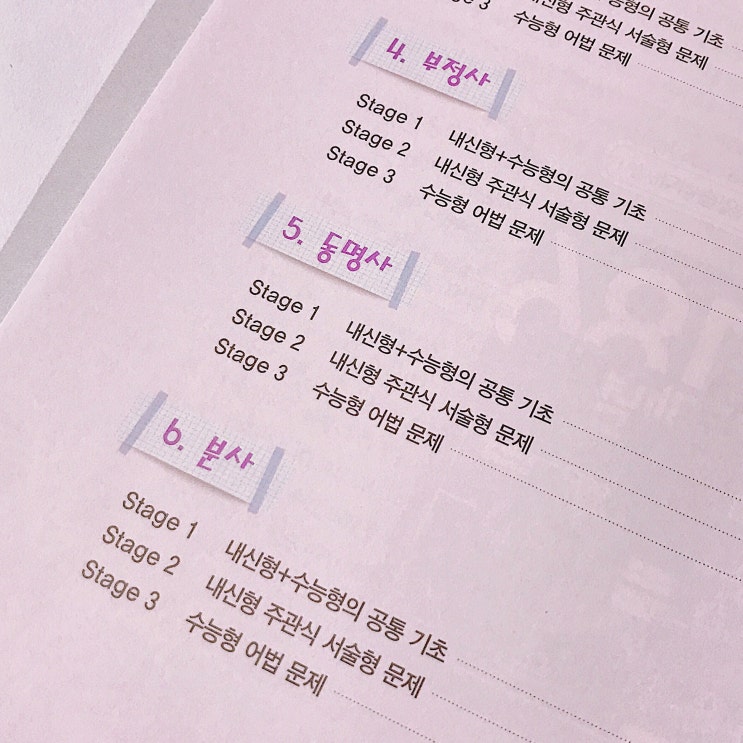 형의 공통 기초
내신형 주관식 서술형 문제
Stage 3 수능형 어법 문제
4. 부정사
Stage 1 내신형+수능형의 공통 기초
Stage 2 내신형 주관식 서술형 문제
Stage 3 수능형 어법 문제
5. 동명사
Stage 1 내신형+수능형의 공통 기초
Stage 2 내신형 주관식 서술형 문제
Stage 3 수능형 어법 문제
6. 분사
Stage 1 내신형+수능형의 공통 기초
Stage 2 내신형 주관식 서술형 문제
Stage 3 수능형 어법 문제